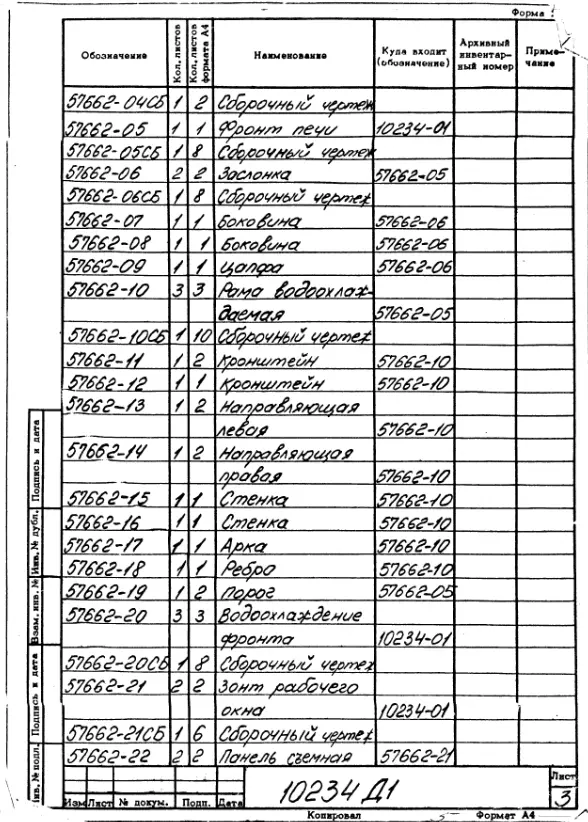 Форма
Обозначение Кол. листов Кол. листов формата А4 Наименование Куда входит (обозначение) Архивный инвентарный номер Примечание
57662-04СБ 1 2 Сборочный чертеж
57662-05 1 1 Фронт печи 10234-01
57662-05СБ 1 8 Сборочный чертеж
57662-06 2 2 Заслонка 57662-05
57662-06СБ 1 8 Сборочный чертеж
57662-07 1 1 Боковина 57662-06
57662-08 1 1 Боковина 57662-06
57662-09 1 1 Цапфа 57662-06
57662-10 3 3 Рама водоохлаж-
даемая 57662-05
57662-10СБ 1 10 Сборочный чертеж
57662-11 1 2 Кронштейн 57662-10
57662-12 1 1 Кронштейн 57662-10
57662-13 1 2 Направляющая
левая 57662-10
57662-14 1 2 Направляющая
правая 57662-10
57662-15 1 1 Стенка 57662-10
57662-16 1 1 Стенка 57662-10
57662-17 1 1 Арка 57662-10
57662-18 1 1 Ребро 57662-10
57662-19 1 2 Порог 57662-05
57662-20 3 3 Водоохлаждение
фронта 10234-01
57662-20СБ 1 8 Сборочный чертеж
57662-21 2 2 Зонт рабочего
окна 10234-01
57662-21СБ 1 6 Сборочный чертеж
57662-22 2 2 Панель съемная 57662-21
Подпись и дата
Инв. № дубл.
Взам. инв. №
Подпись и дата
Инв. № подл.
Изм Лист № докум. Подп. Дата
10234 Д1
Лист
3
Копировал Формат А4